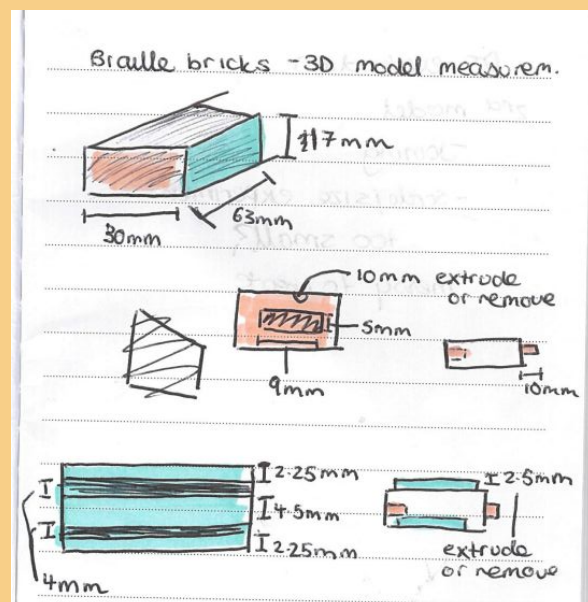 Braille bricks - 3D model measurem.
17mm
63mm
30mm
10mm extrude
or remove
5mm
9mm
10mm
2.25mm
4.5mm
2.25mm
4mm
2.5mm
extrude
or remove